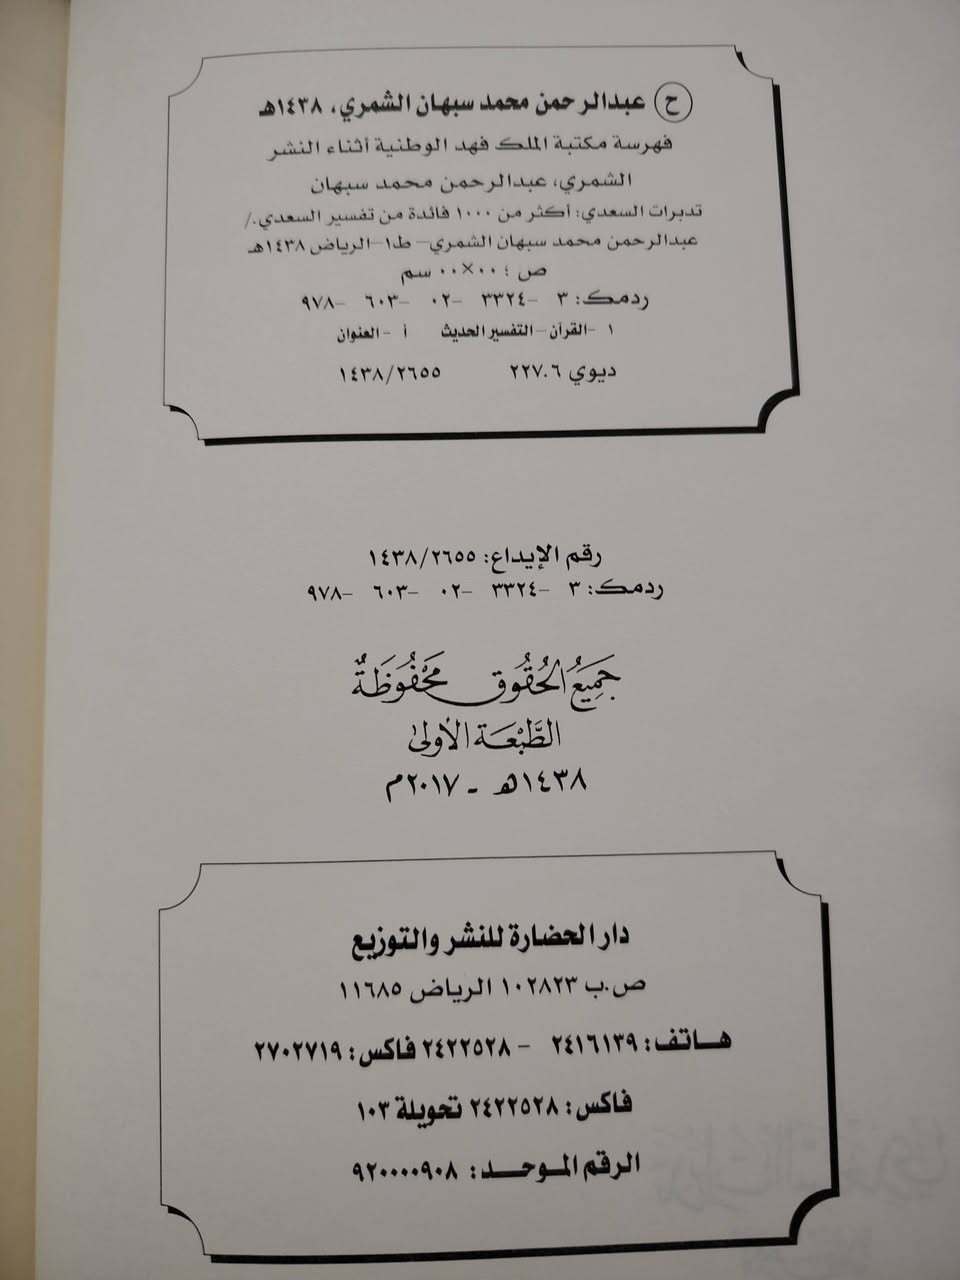 ح عبدالرحمن محمد سبهان الشمري، ١٤٣٨هـ
فهرسة مكتبة الملك فهد الوطنية أثناء النشر
الشمري، عبدالرحمن محمد سبهان
تدبرات السعدي: أكثر من ١٠٠٠ فائدة من تفسير السعدي./
عبدالرحمن محمد سبهان الشمري– ط١–الرياض ١٤٣٨هـ
ص ؛ ٠٠×٠٠ سم
ردمك: ٣ –٣٣٢٤ –٠٢ –٦٠٣ –٩٧٨
١ –القرآن–التفسير الحديث أ –العنوان
ديوي ٢٢٧.٦ ١٤٣٨/٢٦٥٥
رقم الإيداع: ١٤٣٨/٢٦٥٥
ردمك: ٣ –٣٣٢٤ –٠٢ –٦٠٣ –٩٧٨
جَمِيعُ الحُقُوق مَحْفُوظَةٌ
الطَّبْعَة الأولىٰ
١٤٣٨هـ ـ ٢٠١٧م
دار الحضارة للنشر والتوزيع
ص.ب ١٠٢٨٢٣ الرياض ١١٦٨٥
هـاتف: ٢٤١٦١٣٩ – ٢٤٢٢٥٢٨ فاكس: ٢٧٠٢٧١٩
فاكس: ٢٤٢٢٥٢٨ تحويلة ١٠٣
الرقم الموحـد: ٩٢٠٠٠٠٩٠٨